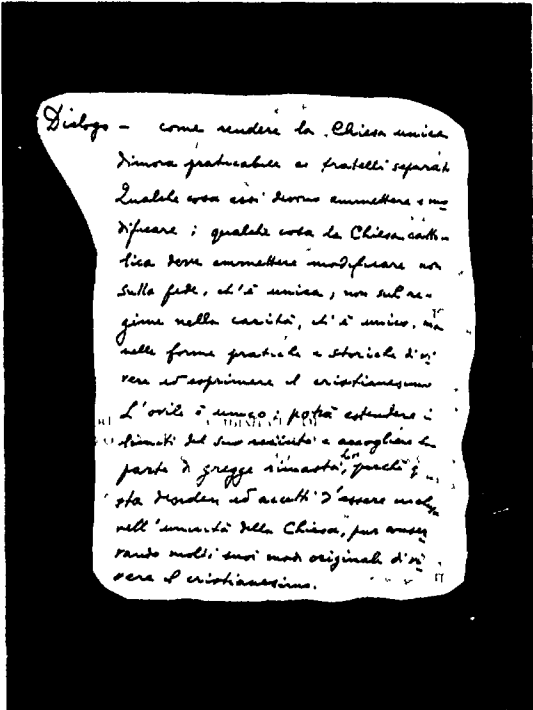 Dialogo - come rendere la Chiesa unica
dimora praticabile ai fratelli separati
Qualche cosa essi devono ammettere e mo
dificare; qualche cosa la Chiesa catto-
lica deve ammettere modificare non
sulla fede, ch'è unica, non sul re-
gime nella carità, ch'è unico, ma
nelle forme pratiche e storiche di vi
vere ed esprimere il cristianesimo
L'ovile è unico; potrà estendere i
limiti del suo recinto e accogliere la
parte di gregge rimasta, perché q
sta desideri ed accetti d'essere
nell'umanità della Chiesa, pur conser
vando molti suoi modi originali di vi
vere il cristianesimo.